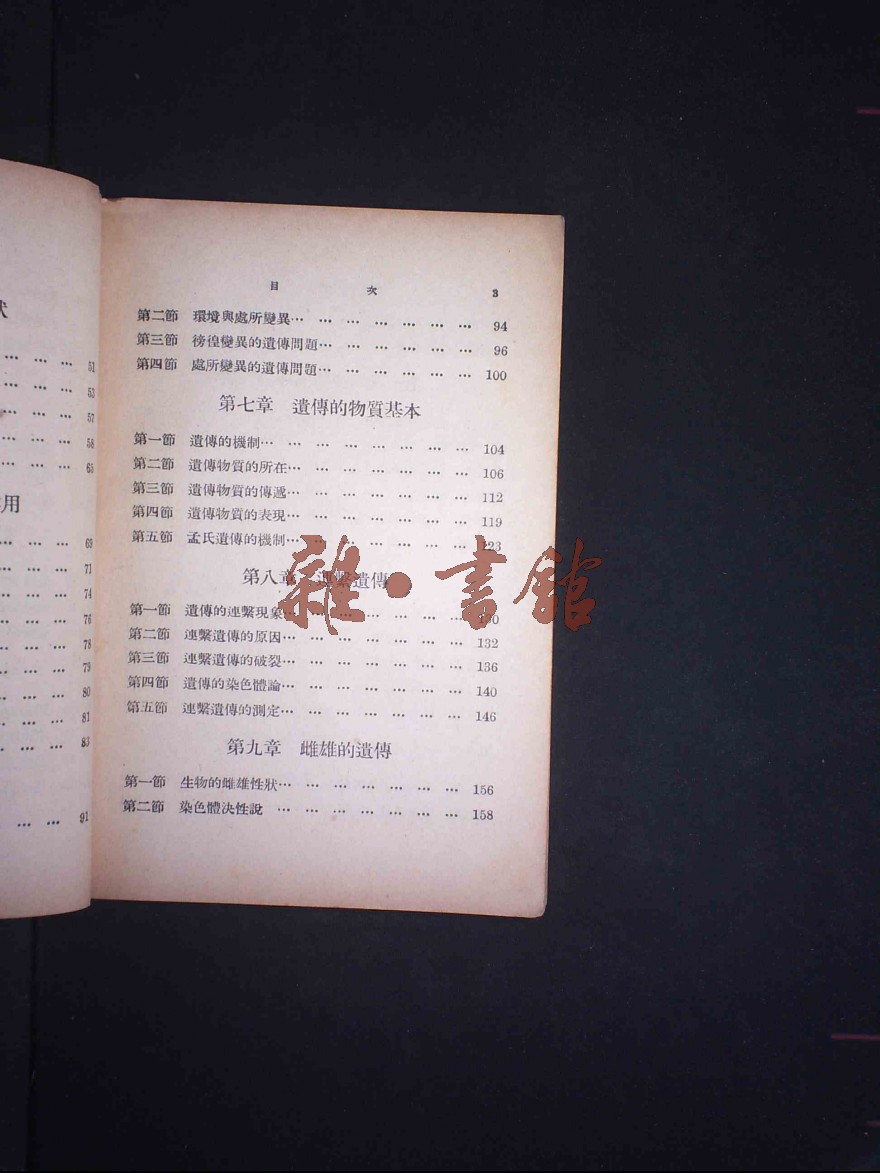 狀
… … … 51
… … … 53
… … … 57
… … … 58
… … … 65
用
… … … 69
… … … 71
… … … 74
… … … 76
… … … 78
… … … 79
… … … 80
… … … 81
… … … 83
… … … 91
目 次 3
第二節 環境與處所變異… … … … … … … 94
第三節 徬徨變異的遺傳問題… … … … … … 96
第四節 處所變異的遺傳問題… … … … … … 100
第七章 遺傳的物質基本
第一節 遺傳的機制… … … … … … … … 104
第二節 遺傳物質的所在… … … … … … … 106
第三節 遺傳物質的傳遞… … … … … … … 112
第四節 遺傳物質的表現… … … … … … … 119
第五節 孟氏遺傳的機制… … … … … … … 123
第八章 連繫遺傳
第一節 遺傳的連繫現象… … … … … … … 130
第二節 連繫遺傳的原因… … … … … … … 132
第三節 連繫遺傳的破裂… … … … … … … 136
第四節 遺傳的染色體論… … … … … … … 140
第五節 連繫遺傳的測定… … … … … … … 146
第九章 雌雄的遺傳
第一節 生物的雌雄性狀… … … … … … … 156
第二節 染色體決性說 … … … … … … … 158
雜·書館